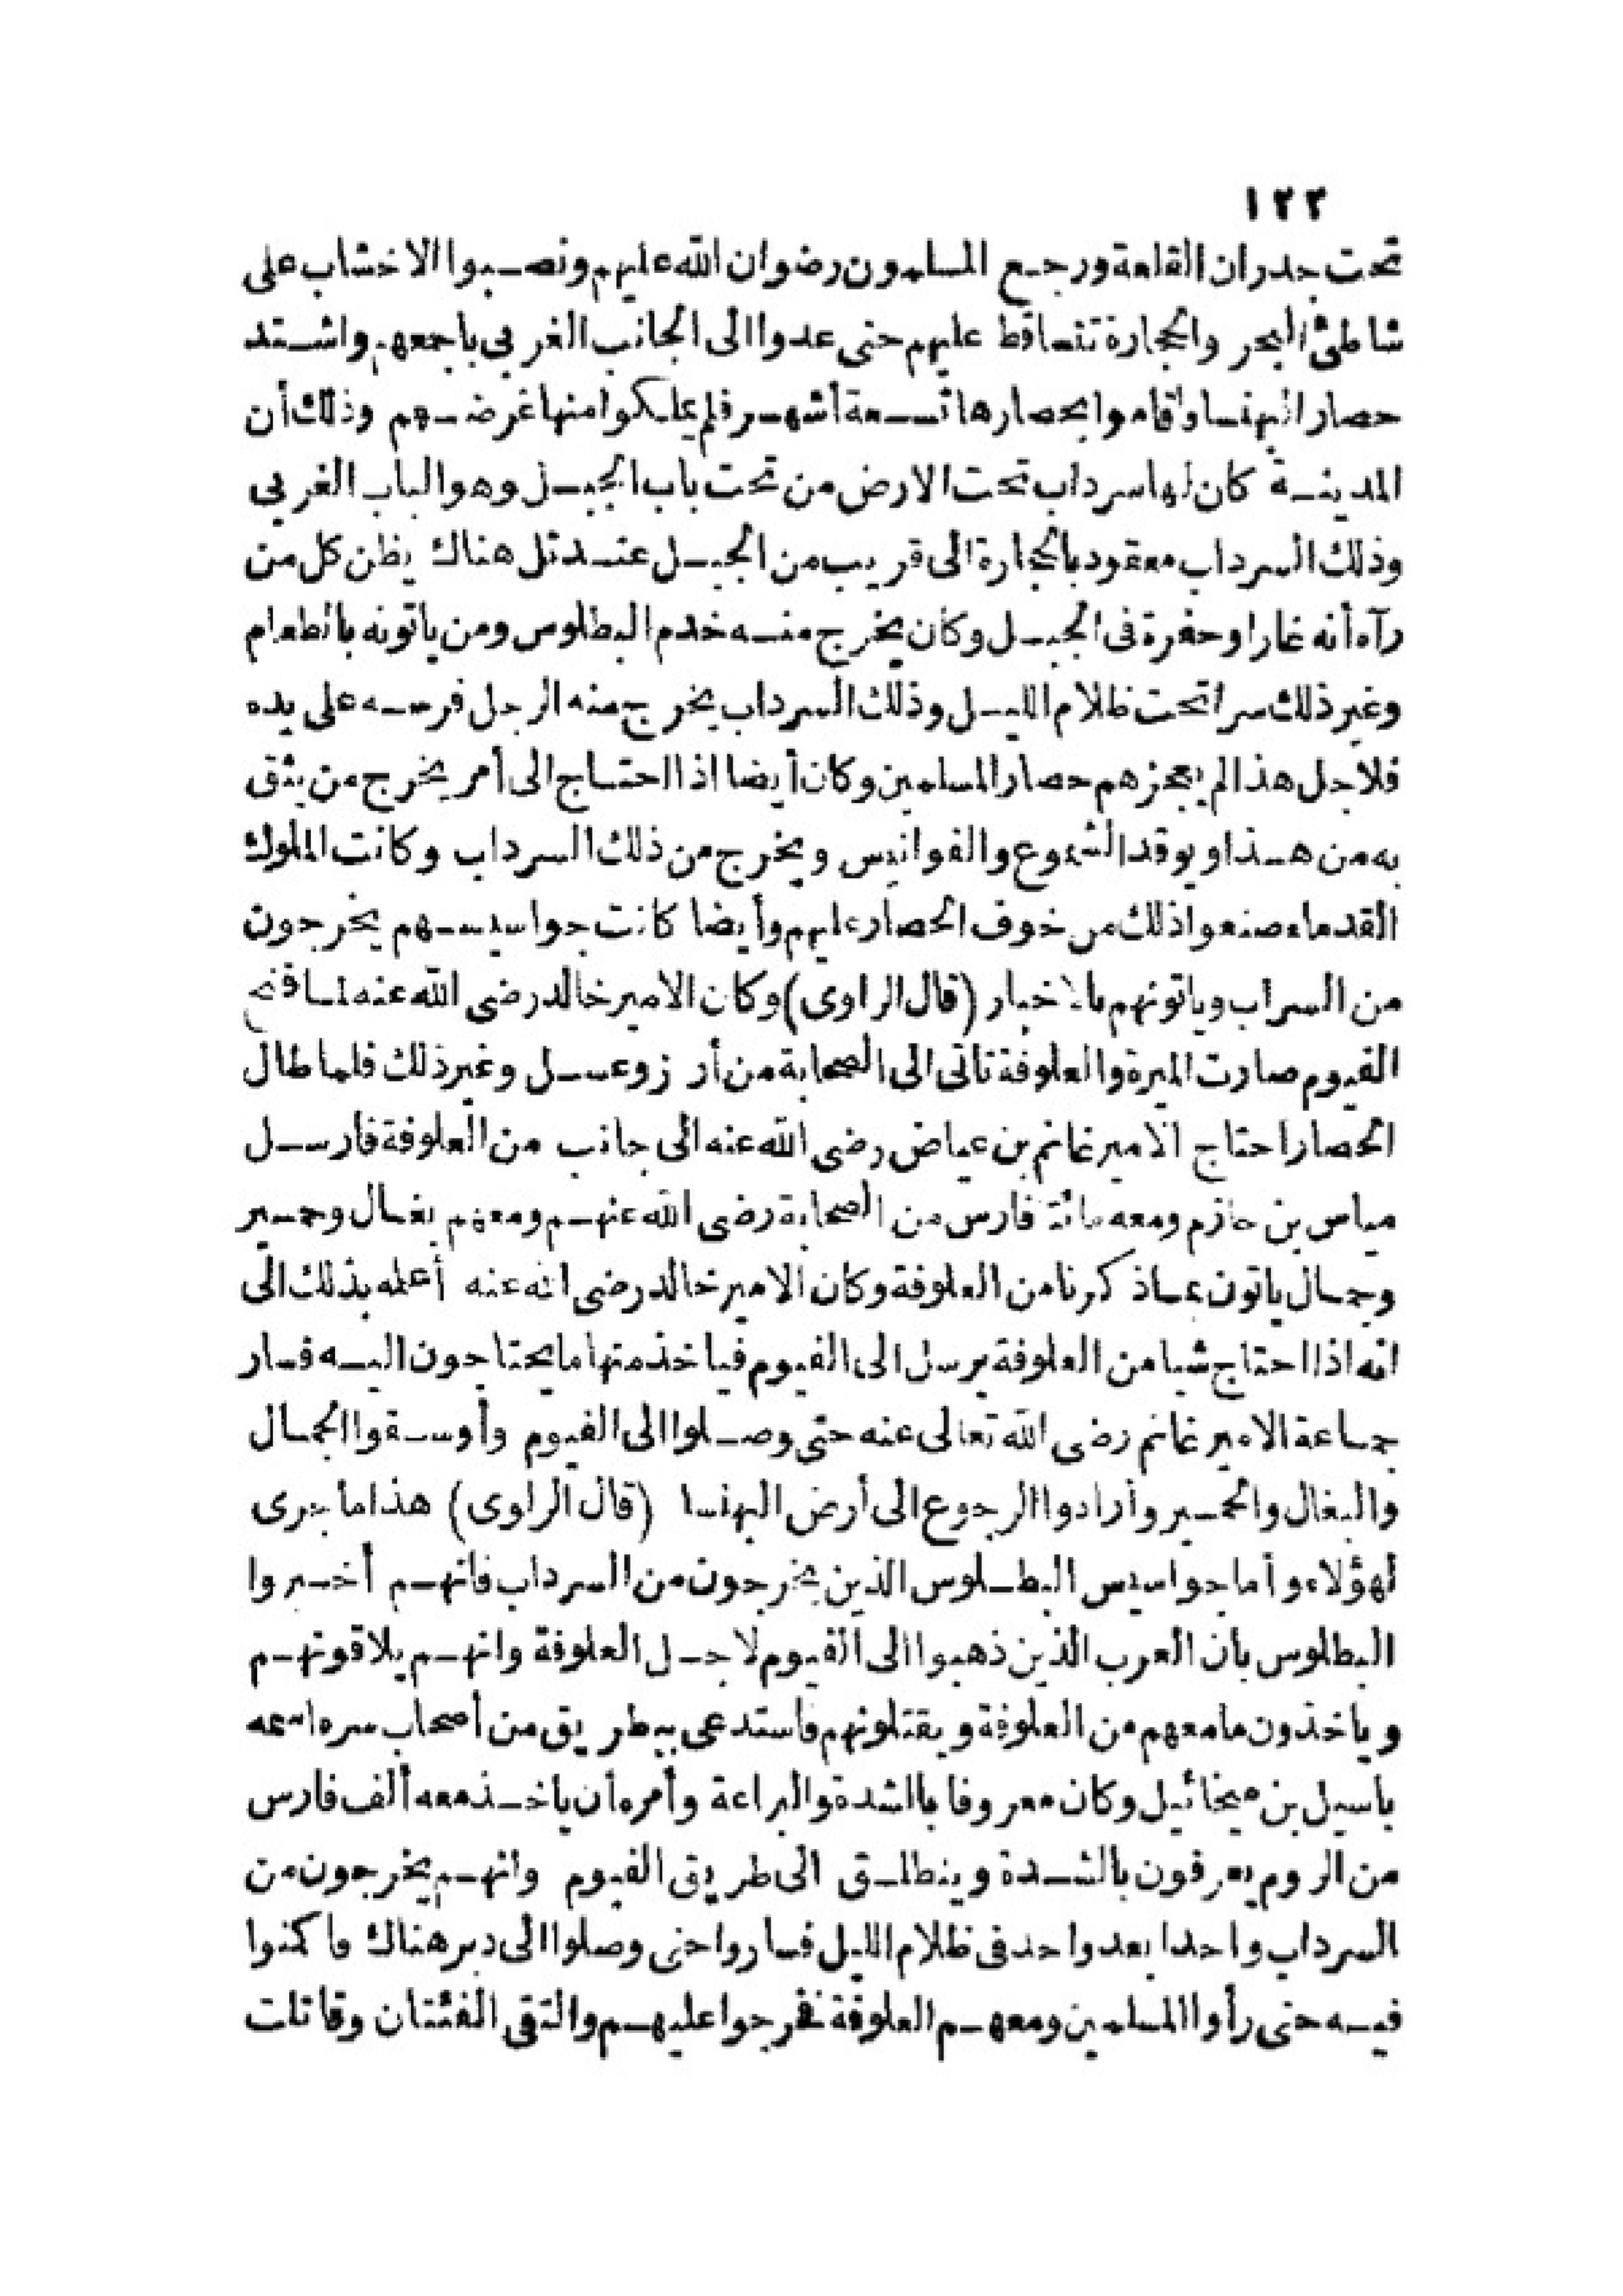 ١٢٢
تحت جدران القلعة ورجع المسلمون رضوان الله عليهم ونصبوا الاخشاب على
شاطئ البحر والحجارة تتساقط عليهم حتى عدوا الى الجانب الغربى باجمعهم واشتد
حصار البهنسا وأقاموا بحصارها تسعة أشهر فلم يملكوا منها غرضهم وذلك أن
المدينة كان لها سرداب تحت الارض من تحت باب الجبل وهو الباب الغربى
وذلك السرداب معقود بالحجارة الى قريب من الجبل عند تل هناك يظن كل من
رآه أنه غارا وحفرة فى الجبل وكان يخرج منه خدم البطلوس ومن ياتونه بالطعام
وغير ذلك سرا تحت ظلام الليل وذلك السرداب يخرج منه الرجل فرسه على يده
فلاجل هذا لم يعجزهم حصار المسلمين وكان أيضا اذا احتاج الى أمر يخرج من يثق
به من هذا ويوقد الشموع والفوانيس ويخرج من ذلك السرداب وكانت الملوك
القدماء صنعوا ذلك من خوف الحصار عليهم وأيضا كانت جواسيسهم يخرجون
من السراب وياتونهم بالاخبار (قال الراوى) وكان الامير خالد رضى الله عنه لما فتح
الفيوم صارت الميرة والعلوفة تاتى الى الصحابة من أرز وعسل وغير ذلك فلما طال
الحصار احتاج الامير غانم بن عياض رضى الله عنه الى جانب من العلوفة فارسل
مياس بن حازم ومعه مائة فارس من الصحابة رضى الله عنهم ومعهم بغال وحمير
وجمال ياتون بما ذكرنا من العلوفة وكان الامير خالد رضى الله عنه أعلمه بذلك الى
انه اذا احتاج شيا من العلوفة يرسل الى الفيوم فياخذ منها ما يحتاجون اليه فسار
جماعة الامير غانم رضى الله تعالى عنه حتى وصلوا الى الفيوم وأوسقوا الجمال
والبغال والحمير وأرادوا الرجوع الى أرض البهنسا (قال الراوى) هذا ما جرى
لهؤلاء وأما جواسيس البطلوس الذين يخرجون من السرداب فانهم أخبروا
البطلوس بأن العرب الذين ذهبوا الى الفيوم لاجل العلوفة وانهم يلاقونهم
وياخذون ما معهم من العلوفة ويقتلونهم فاستدعى ببطريق من أصحاب سره اسمه
باسيل بن ميخائيل وكان معروفا بالشدة والبراعة وأمره أن ياخذ معه ألف فارس
من الروم يعرفون بالشدة وينطلق الى طريق الفيوم وانهم يخرجون من
السرداب واحدا بعد واحد فى ظلام الليل فساروا حتى وصلوا الى دير هناك فاكمنوا
فيه حتى رأوا المسلمين ومعهم العلوفة فخرجوا عليهم والتقى الفئتان وقاتلت